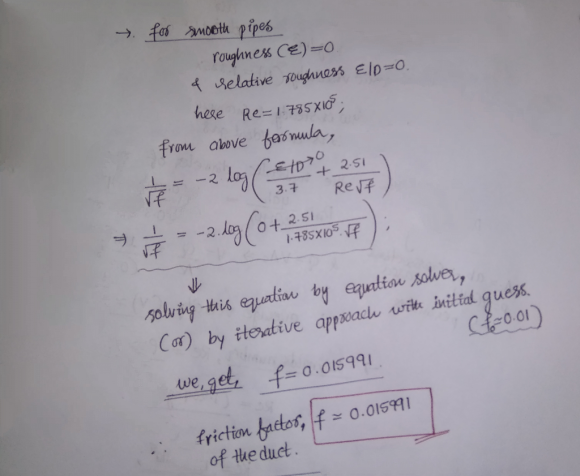 →. for smooth pipes
roughness (ε)=0
& relative roughness ε/D=0.
here Re=1.785×10⁵;
from above formula,
1/√f = -2 log(ε/D→0/3.7 + 2.51/Re√f)
⇒ 1/√f = -2.log(0+2.51/1.785×10⁵.√f);
⇓
solving this equation by equation solver,
(or) by iterative approach with initial guess.
(f₀=0.01)
we, get, f=0.015991
∴ friction factor, f ≃ 0.015991
of the duct.